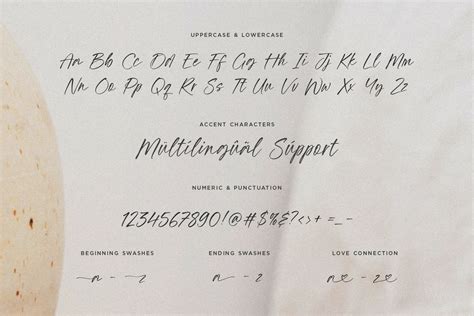 UPPERCASE & LOWERCASE
Aa Bb Cc Dd Ee Ff Gg Hh Ii Jj Kk Ll Mm
Nn Oo Pp Qq Rr Ss Tt Uu Vv Ww Xx Yy Zz
ACCENT CHARACTERS
Múltilingûäl Súpport
NUMERIC & PUNCTUATION
1234567890!@#$%&?<>+=_-
BEGINNING SWASHES
ENDING SWASHES
LOVE CONNECTION
n - z
n - z
n - z